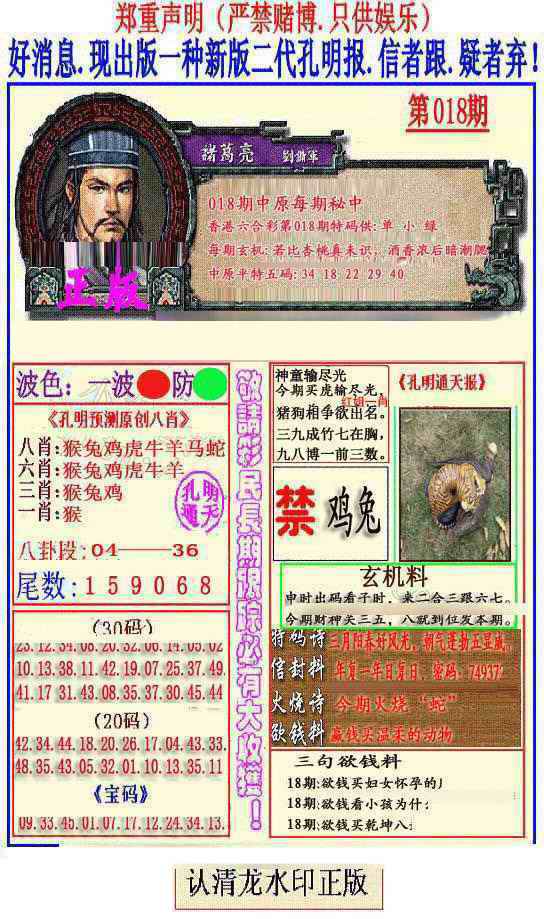 郑重声明（严禁赌博.只供娱乐）
好消息.现出版一种新版二代孔明报.信者跟.疑者弃!
第018期
諸葛亮 劉備軍
018期中原每期秘中
香港六合彩第018期特码供:单 小 绿
每期玄机:若比杏桃真未识，酒香浓后暗潮
中原平特五码:34 18 22 29 40
正版
波色：一波 防
《孔明预测原创八肖》
八肖:猴兔鸡虎牛羊马蛇
六肖:猴兔鸡虎牛羊
三肖:猴兔鸡
一肖:猴
孔明通天
八卦段:04——36
尾数:159068
敬請彩民長期跟踪必有大收獲！
神童输尽光
今期买虎输尽光，
红姐一肖
猪狗相争欲出名。
三九成竹七在胸，
九八博一前三数。
《孔明通天报》
禁 鸡兔
玄机料
申时出码看子时，来二合三跟六七。
今期财神关三五，八就到位发本期。
(30码)
23.12.34.08.20.32.06.14.05.02
10.13.38.11.42.19.07.25.37.49
41.17.31.43.08.35.37.30.45.44
(20码)
42.34.44.18.20.26.17.04.43.33.
48.35.43.05.32.01.10.13.35.11
《宝码》
09.33.45.01.07.17.12.24.34.13.
特码诗 三月阳春好风光，朝气蓬勃五显威
信封料 年复一年日复日，密码：74937
火烧诗 今期火烧“蛇”
欲钱料 赢钱买温柔的动物
三句欲钱料
18期:欲钱买妇女怀孕的
18期:欲钱看小孩为什
18期:欲钱买乾坤八
认清龙水印正版